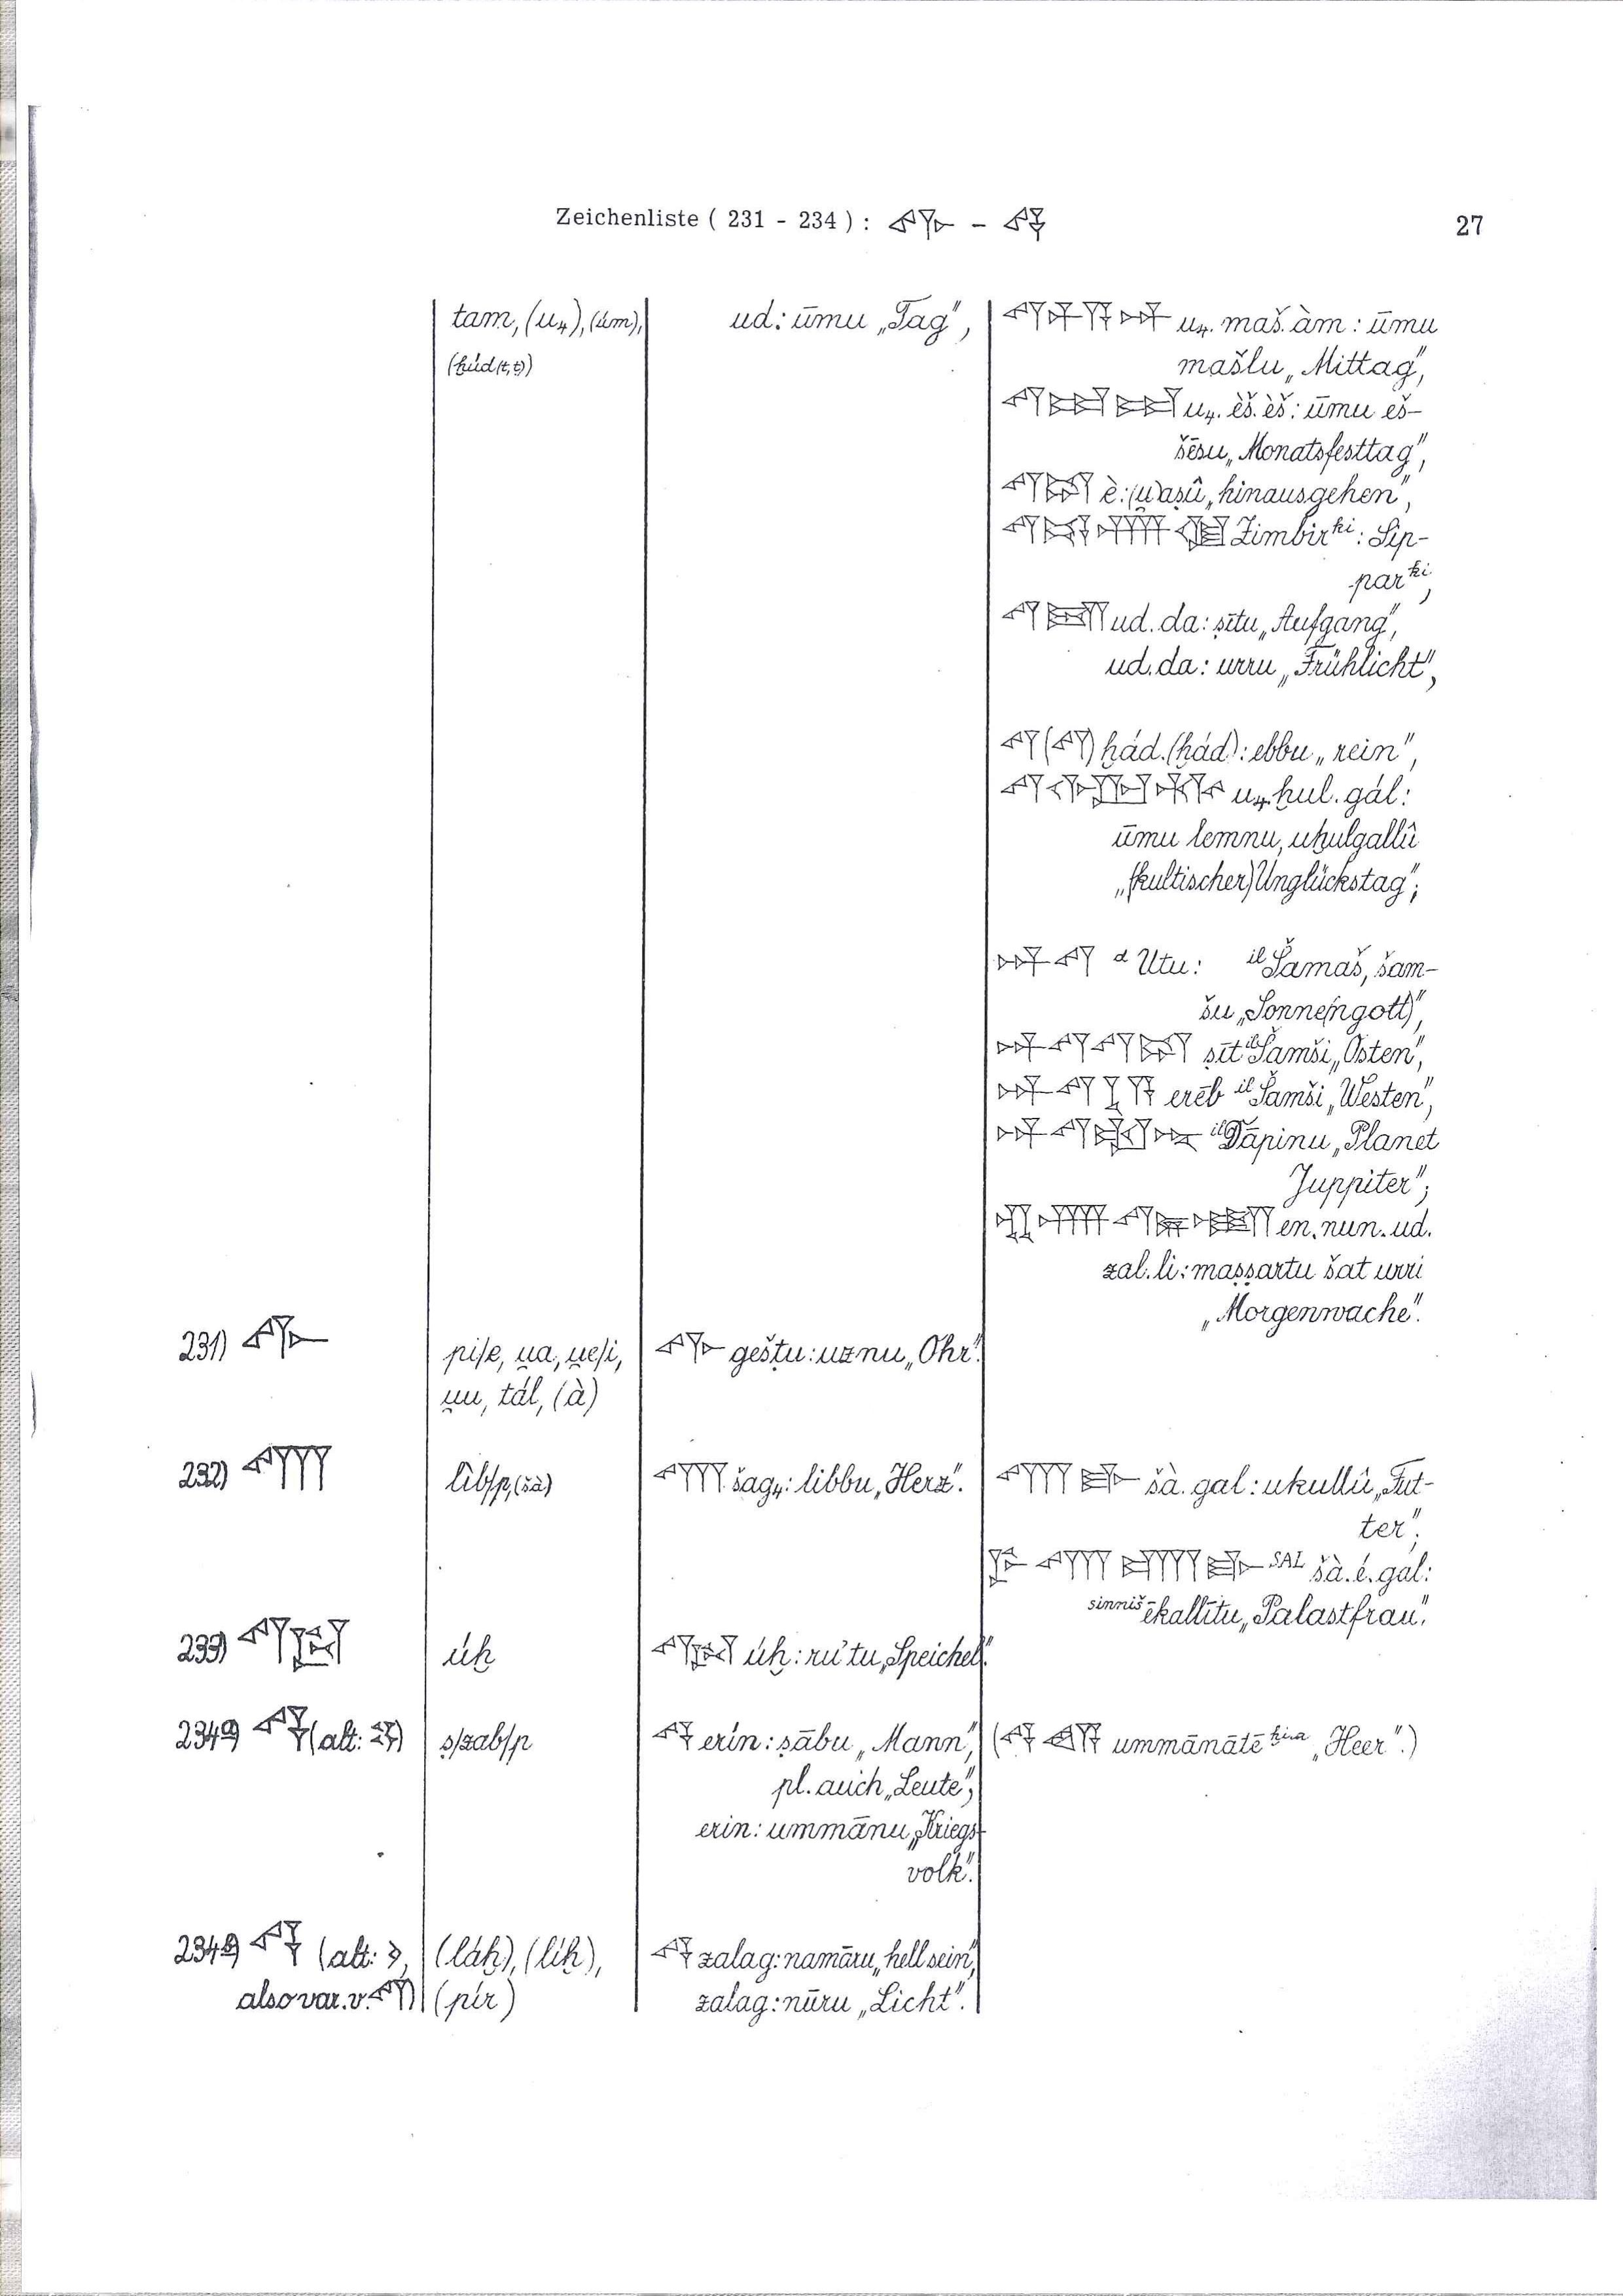 Zeichenliste ( 231 - 234 ) : 𒉿 - 𒂟
27
tam, (u₄), (úm),
(ḫúd(t,ṭ))
ud: ūmu „Tag",
𒌓𒈦𒀀𒀭 u₄. maš. àm: ūmu
mašlu „Mittag",
u₄. èš. èš: ūmu eš-
šēsu „Monatsfesttag",
𒌓𒁺 è: (u̯)aṣû „hinausgehen",
𒌓𒄒𒉣𒆠 Zimbir ᵏⁱ: Sip-
par ᵏⁱ,
𒌓𒁕 ud. da: ṣītu „Aufgang",
ud. da: urru „Frühlicht",
𒌓(𒌓) ḫád. (ḫád): ebbu „rein",
𒌓𒅆𒌨𒃲 u₄. ḫul. gál:
ūmu lemnu, uḫulgallû
„(kultischer) Unglückstag";
𒀭𒌓 ᵈ Utu: ⁱˡ Šamaš, šam-
šu „Sonne(ngott)",
𒀭𒌓𒌓𒁺 ṣīt ⁱˡ Šamši „Osten",
𒀭𒌓𒋗𒀀 erēb ⁱˡ Šamši „Westen",
ⁱˡ Dāpinu „Planet
Juppiter";
𒂗𒉣𒌓𒉌𒇷 en. nun. ud.
zal. li: maṣṣartu šat urri
„Morgenwache".
231) 𒉿
pi/e, u̯a, u̯e/i,
u̯u, tál, (à)
𒉿 geštu: uznu „Ohr".
232) 𒊮
lìb/p, (šà)
𒊮 šag₄: libbu „Herz".
𒊮𒃲 šà. gal: ukullû „Fut-
ter";
𒊩𒊮𒂍𒃲 SAL šà. é. gal:
sinniš ēkallītu „Palastfrau".
233) 𒌔
úḫ
𒌔 úḫ: ru'tu „Speichel".
234a) 𒂟 (alt: 𒂟)
ṣ/zab/p
𒂟 erín: ṣābu „Mann",
pl. auch „Leute",
erin: ummānu „Kriegs-
volk".
(𒂟𒄭𒀀 ummānātē ḫi.a „Heer".)
234b) 𒂟 (alt: 𒌓,
also var. v. 𒌓)
(láḫ), (líḫ),
(pír)
𒂟 zalag: namāru „hell sein",
zalag: nūru „Licht".